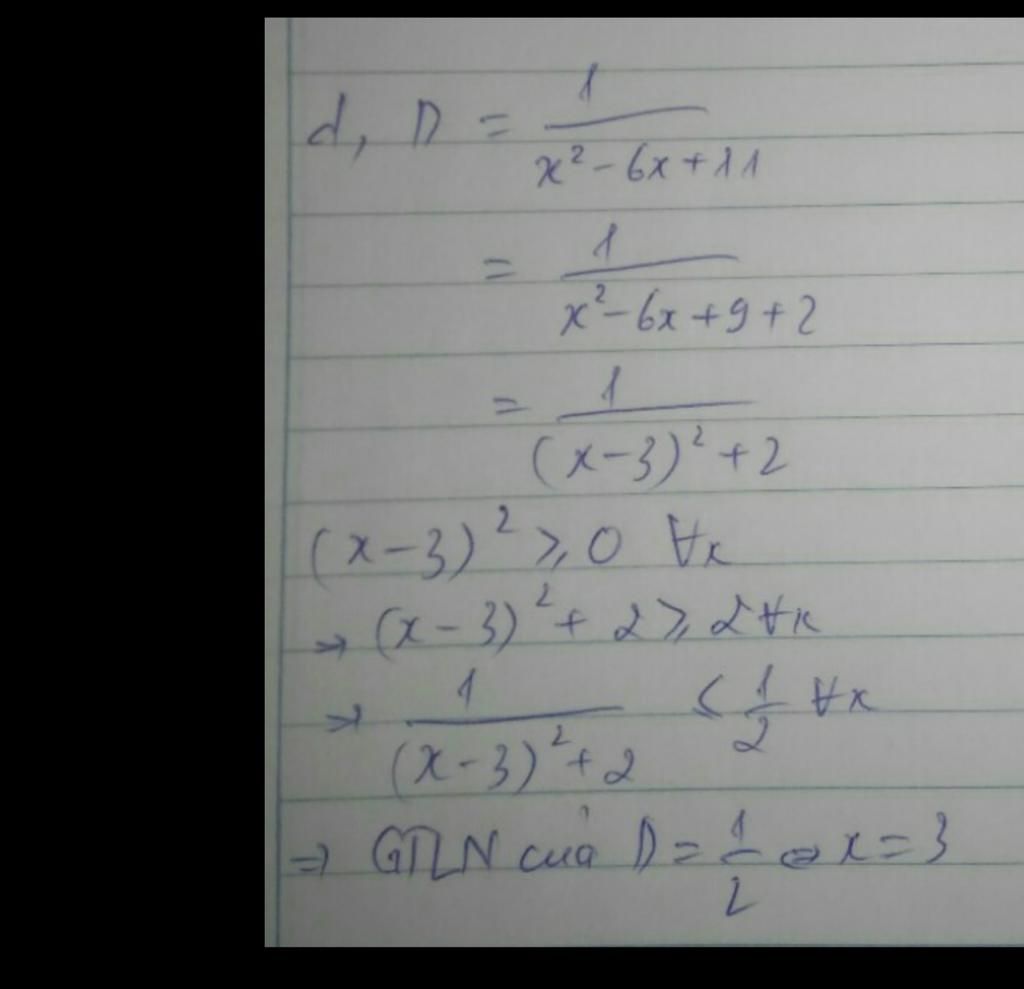 d, D = 1/(x² - 6x + 11)
= 1/(x² - 6x + 9 + 2)
= 1/((x - 3)² + 2)
(x - 3)² ≥ 0 ∀x
→ (x - 3)² + 2 ≥ 2 ∀x
→ 1/((x - 3)² + 2) ≤ 1/2 ∀x
⇒ GTLN của D = 1/2 ⇔ x = 3